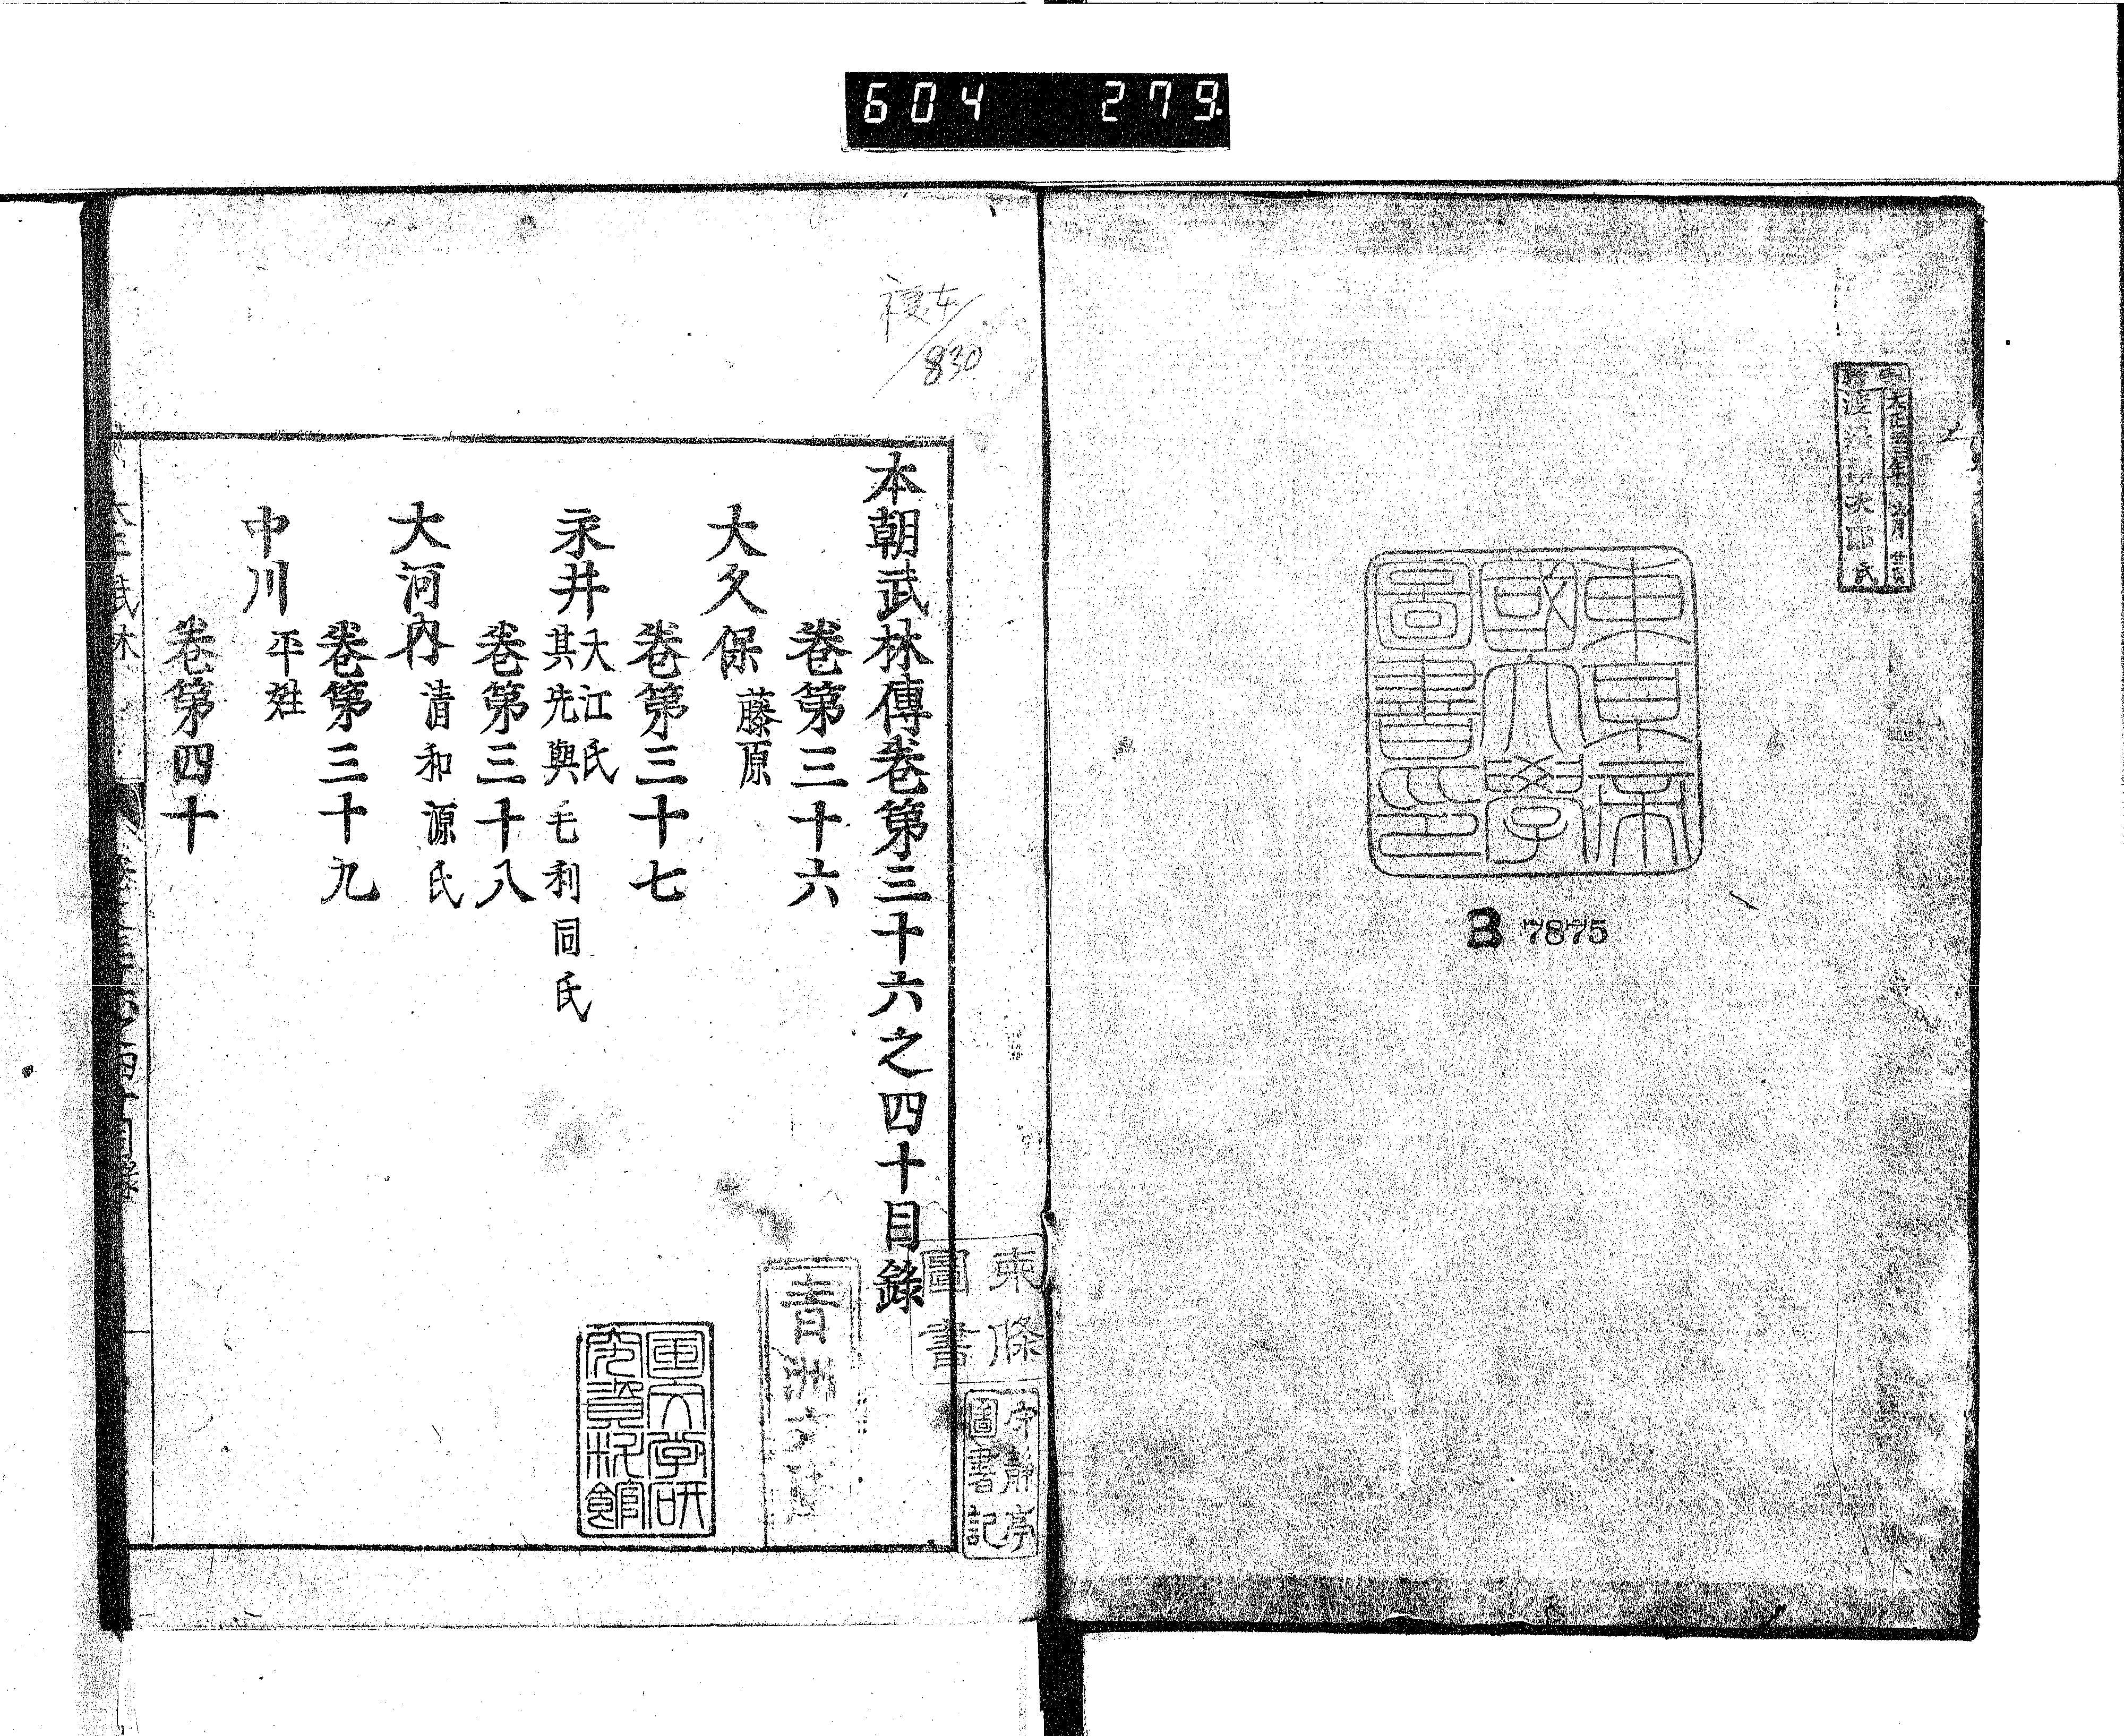 604 279
大正五年 月
渡 氏
東京帝
國大學
圖書印
B 7875
複本
830
本朝武林傳卷第三十六之四十目錄
卷第三十六
大久保 藤原
卷第三十七
永井 大江氏
其先與毛利同氏
卷第三十八
大河內 清和源氏
卷第三十九
中川 平姓
卷第四十
東條
圖書
守靜亭
圖書記
青洲文庫
国文学研
究資料館